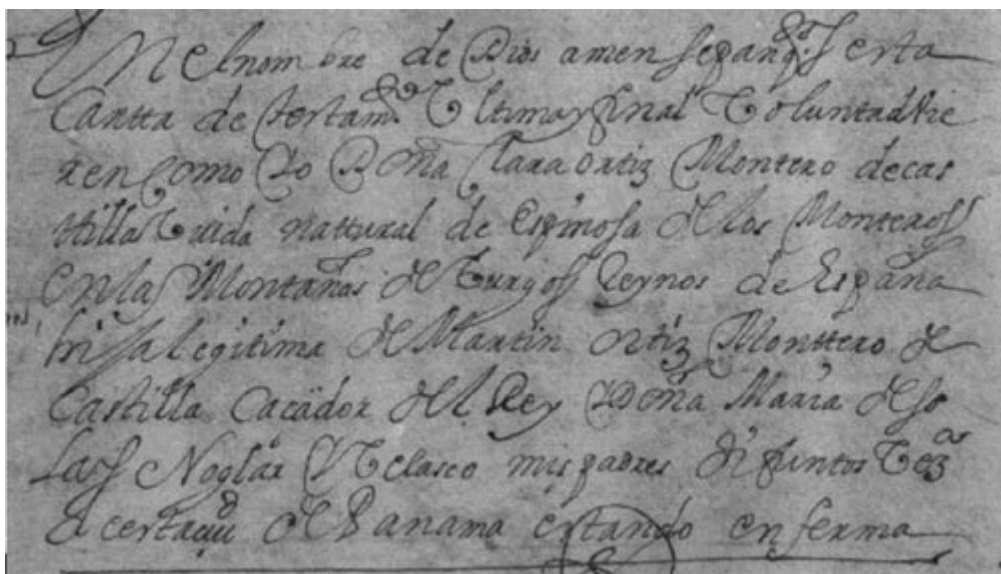 En el nombre de Dios amen sepan qtos esta
Cartta de testamto Vltima y final Voluntad Vie
ren como Yo Doña Clara ortiz Montero de cas
ttilla Viuda nattural de espinosa de los Monteross
en las Montañas de Burgos Reynos de España
hija legitima de Martin ortiz Monttero de
Castilla Caçador del Rey Y Doña Maria de so
las Noglar Y Velasco mis padres difuntos Vezas
de esta ciud de Panama estando enferma